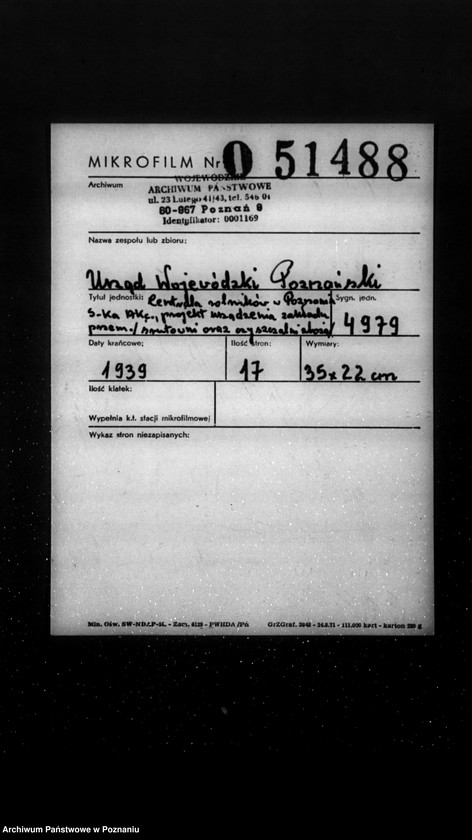 MIKROFILM Nr 0 51488
Archiwum
WOJEWÓDZKIE
ARCHIWUM PAŃSTWOWE
ul. 23 Lutego 41/43, tel. 546 01
60-967 Poznań 9
Identyfikator: 0001169
Nazwa zespołu lub zbioru:
Urząd Wojewódzki Poznański
Tytuł jednostki: Centrala rolników w Poznaniu
Sygn. jedn.
S-ka Akc., projekt urządzenia zakładu
przem. /śrutowni oraz czyszczalni zboża/
4979
Daty krańcowe: Ilość stron: Wymiary:
1939 17 35x22 cm
Ilość klatek:
Wypełnia k.t. stacji mikrofilmowej
Wykaz stron niezapisanych:
Min. Ośw. - Zam. - PWHDA /Pń GrZGraf. - 111.000 kart - karton
Archiwum Państwowe w Poznaniu